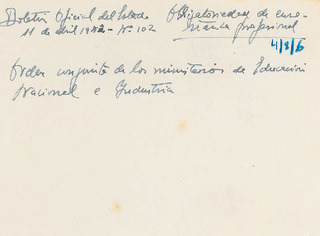 Boletín Oficial del Estado
11 de abril 1942 - Nº 102
Obligatoriedad de ense-
ñanza profesional
4/8/6
Orden conjunta de los ministerios de Educación
Nacional e Industria